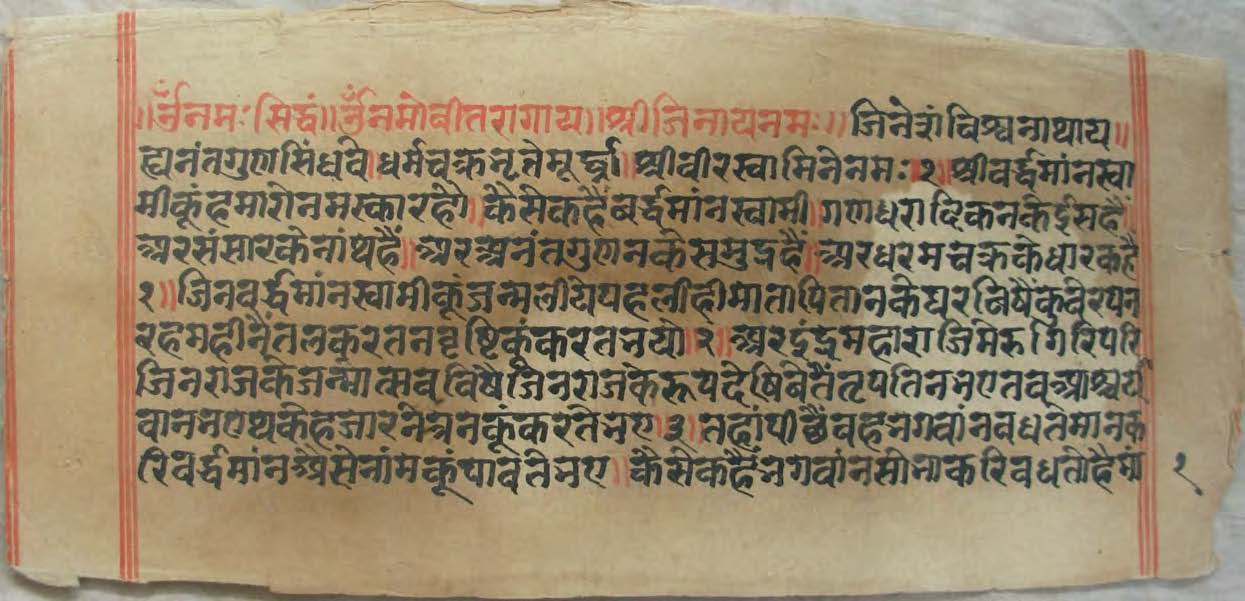 ॥ॐनमः सिद्धं॥ॐनमोवीतरागाय॥श्रीजिनायनमः॥ जिनेशंविश्वनाथाय॥
ह्यनंतगुणसिंधवे॥धर्मचक्रनृतेमूर्द्ध्ना॥श्रीवीरस्वामिनेनमः१॥श्रीवर्द्धमांनस्वा
मीकूंहमारोनमस्कारहौ॥कैसेकहैंवर्द्धमांनस्वामी॥गणधरादिकनकेईसहैं
अरसंसारकेनांथहैं॥अरअनंतगुणनकेसमुद्रहैं॥अरधरमचक्रकेधारकहै
१॥जिनवर्द्धमांनस्वामीकूंजन्मलीयेपहलीहीमातापितानकेघरविषैंकुवेरपन
रहमहीनैंतलकरतनवृष्टिकूंकरतनयो॥२॥अरइंद्रमहाराजमेरुगिरिपरि
जिनराजकेजन्मोत्सवविषैंजिनराजकेरूपदेषिवेतैंतृपतिननएतवआश्चर्य
वाननएथकेहजारनेत्रनकूंकरतेनए॥३॥तहांपीछैंवहनगवांनवधतेमानक
रिवर्द्धमांनअैसेनांमकूंपावतेनए॥कैसेकहैंनगवांनसोनाकरिवधतीहैमा
१